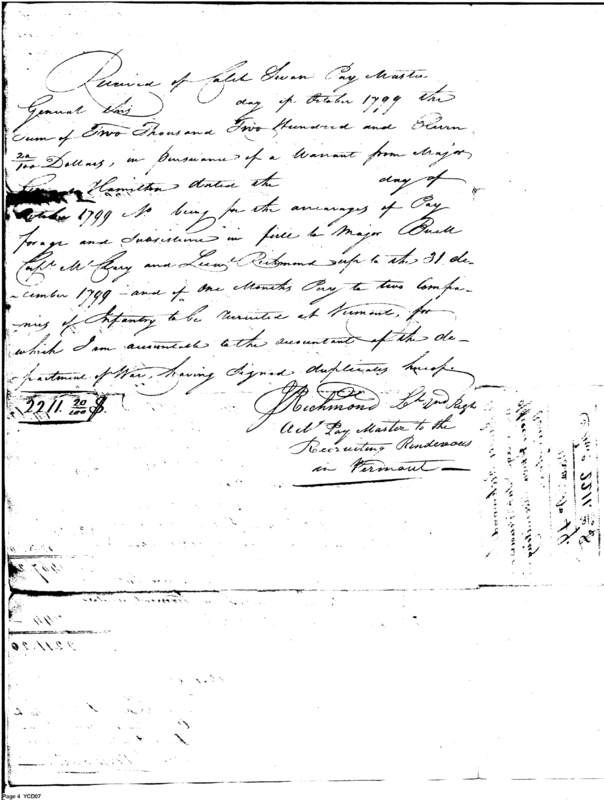 Received of Caleb Swan Pay Master
General this day of October 1799 the
sum of Two Thousand Two Hundred and Eleven
20/100 Dollars, in pursuance of a Warrant from Major
Hamilton dated the day of
October 1799 No being for the arrearages of Pay
forage and subsistence in full to Major Buell
Capt. McClary and Lieut. Richmond up to the 31 de-
-cember 1799 - and of one Months Pay to two Compa-
nies of Infantry to be recruited at Vermont, for
which I am accountable to the accountant of the de-
-partment of War, having signed duplicates hereof
2211 20/100 $
J Richmond Lt 2nd Regt
Act Pay Master to the
Recruiting Rendevous
in Vermont
2211.20
Page 4 YCD07